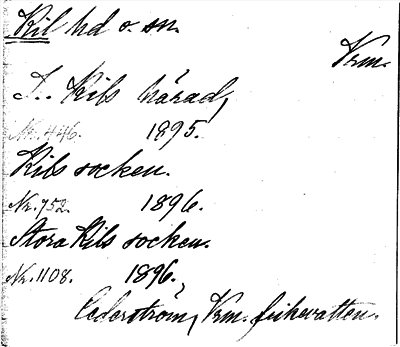 Kil hd o. sn.
Vrm.
I.. Kils härad,
Nr. 446. 1895.
Kils socken.
Nr. 752. 1896.
Stora Kils socken.
Nr. 1108. 1896.,
Cederström, Vrm. fiskevatten.